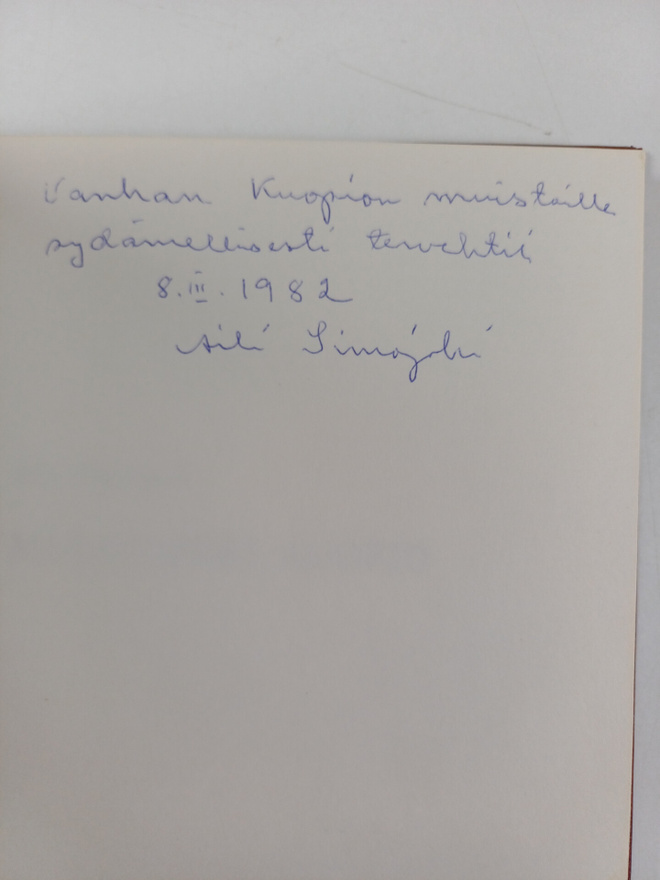 Vanhan Kuopion muistoille
sydämellisesti tervehtii
8.III.1982
Aili Simojoki